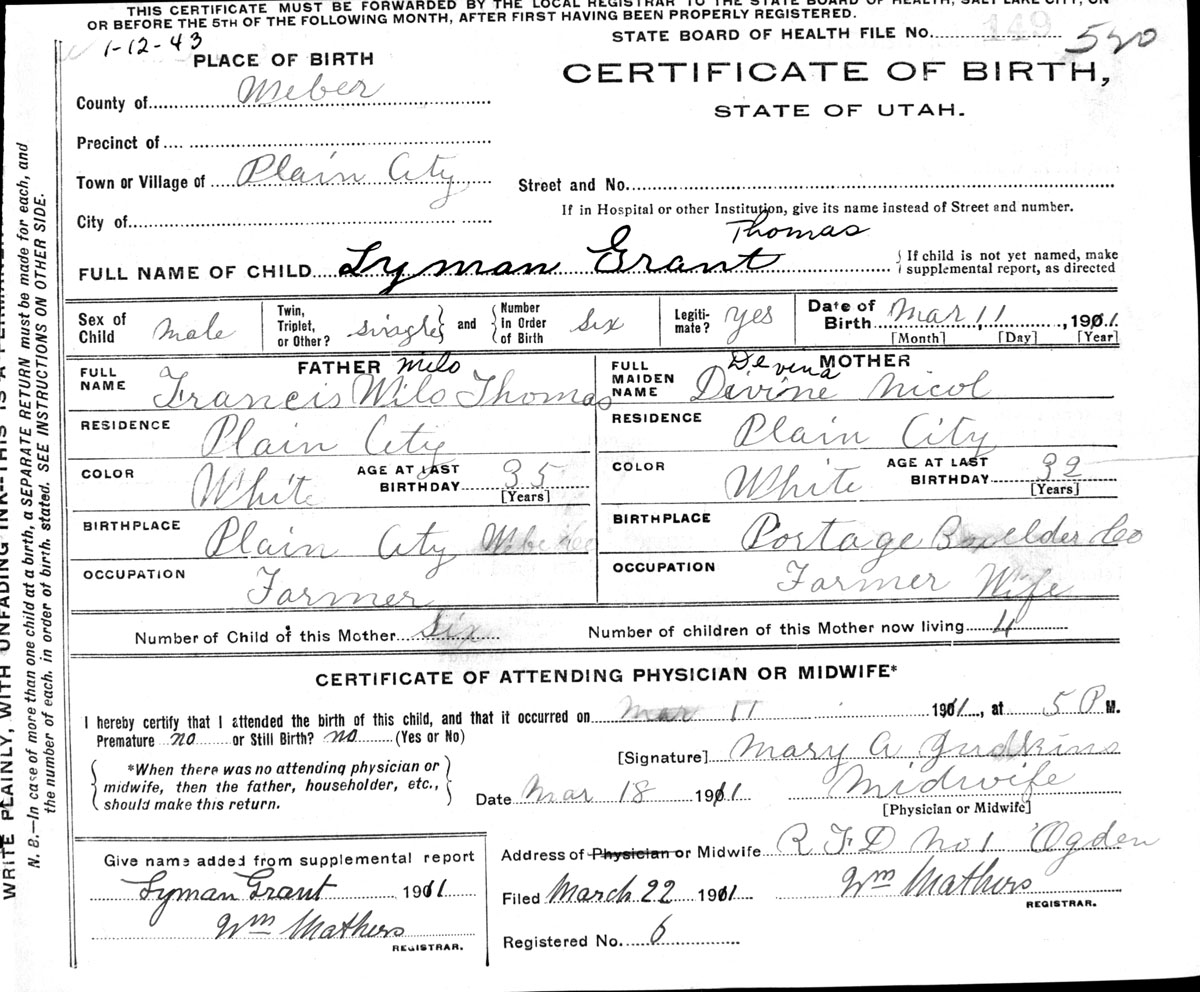 THIS CERTIFICATE MUST BE FORWARDED BY THE LOCAL REGISTRAR TO THE STATE BOARD OF HEALTH, SALT LAKE CITY, ON
OR BEFORE THE 5TH OF THE FOLLOWING MONTH, AFTER FIRST HAVING BEEN PROPERLY REGISTERED.
1-12-43
STATE BOARD OF HEALTH FILE No. 149 520
PLACE OF BIRTH
CERTIFICATE OF BIRTH,
County of Weber
STATE OF UTAH.
Precinct of
Town or Village of Plain City
Street and No.
City of
If in Hospital or other Institution, give its name instead of Street and number.
Thomas
FULL NAME OF CHILD Lyman Grant
If child is not yet named, make
supplemental report, as directed
Sex of Child male
Twin, Triplet, or Other? single and Number in Order of Birth six
Legiti-mate? yes
Date of Birth Mar 11, 1911
[Month] [Day] [Year]
FATHER Milo
Devena MOTHER
FULL NAME Francis Wilo Thomas
FULL MAIDEN NAME Divine Nicol
RESIDENCE Plain City
RESIDENCE Plain City
COLOR White AGE AT LAST BIRTHDAY 35 [Years]
COLOR White AGE AT LAST BIRTHDAY 32 [Years]
BIRTHPLACE Plain City
BIRTHPLACE Portage Boxelder Co
OCCUPATION Farmer
OCCUPATION Farmer Wife
Number of Child of this Mother Six Number of children of this Mother now living 4
CERTIFICATE OF ATTENDING PHYSICIAN OR MIDWIFE*
I hereby certify that I attended the birth of this child, and that it occurred on Mar 11 1911, at 5 P M.
Premature no or Still Birth? no (Yes or No)
[Signature] Mary A Judkins
*When there was no attending physician or
midwife, then the father, householder, etc.,
should make this return.
Date Mar 18 1911 Midwife
[Physician or Midwife]
Address of Physician or Midwife R F D No 1 Ogden
Give name added from supplemental report
Lyman Grant 1911
Wm Mathers
REGISTRAR.
Filed March 22 1911 Wm Mathers
REGISTRAR.
Registered No. 6
WRITE PLAINLY, WITH UNFADING INK--THIS IS A PERMANENT
N. B.—In case of more than one child at a birth, a SEPARATE RETURN must be made for each, and
the number of each, in order of birth, stated. SEE INSTRUCTIONS ON OTHER SIDE.